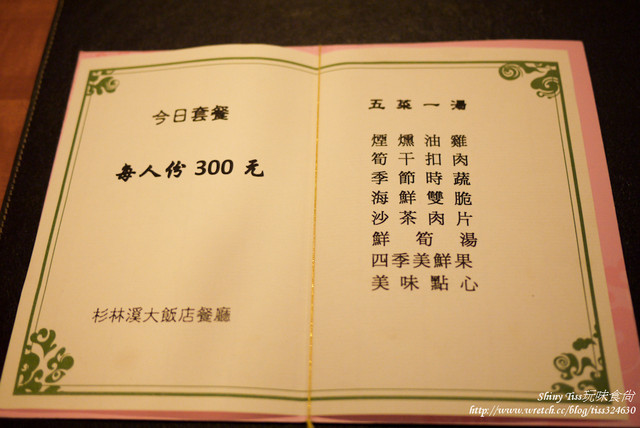 今日套餐
每人份 300 元
杉林溪大飯店餐廳
五菜一湯
煙燻油雞
筍干扣肉
季節時蔬
海鮮雙脆
沙茶肉片
鮮筍湯
四季美鮮果
美味點心
Shiny Tiss玩味食尚
http://www.wretch.cc/blog/tiss324630